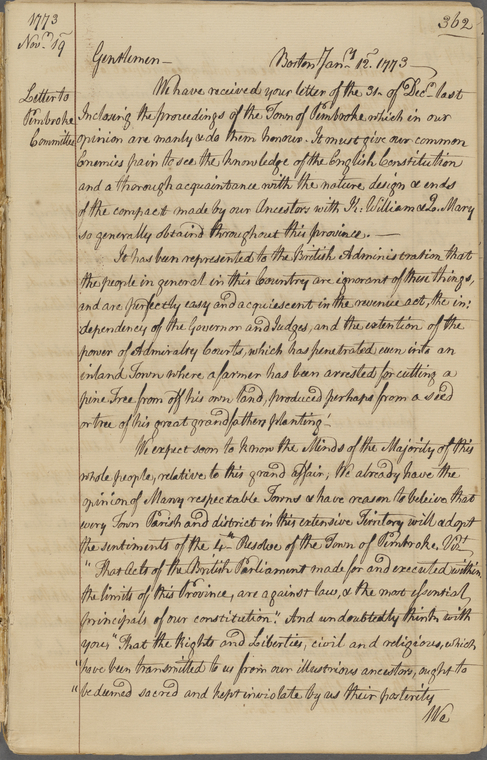 1773
Novr. 19
362
Gentlemen— Boston Jany. 12. 1773—
Letter to
Pembroke
Committee
We have received your letter of the 31st of Decr. last
Inclosing the proceedings of the Town of Pembroke which in our
opinion are manly & do them honour. It must give our common
Enemies pain to see the knowledge of the English Constitution
and a thorough acquaintance with the nature, design & ends
of the compact made by our Ancestors with K: William & Q. Mary
so generally obtaind throughout this province. —
It has been represented to the British Administration that
the people in general in this Country are ignorant of these things,
and are perfectly easy and acquiescent in the revenue act, the in:
dependency of the Governor and Judges, and the extention of the
power of Admiralty Courts, which has penetrated even into an
inland Town where a farmer has been arrested for cutting a
pine Tree from off his own land, produced perhaps from a seed
or tree of his great grandfathers planting!
We expect soon to know the Minds of the Majority of this
whole people, relative to this grand affair, We already have the
opinion of Many respectable Towns & have reason to beleive that
every Town Parish and district in this extensive Territory will adopt
the sentiments of the 4th Resolve of the Town of Pembroke, Vizt
"That Acts of the British Parliament made for and executed within
the limits of this Province, are against law, & the most essential
principals of our constitution". And undoubtedly think with
you, "That the Rights and Liberties, civil and religious, which
"have been transmitted to us from our illustrious ancestors, ought to
"be deemed sacred and kept inviolate by us their posterity
We